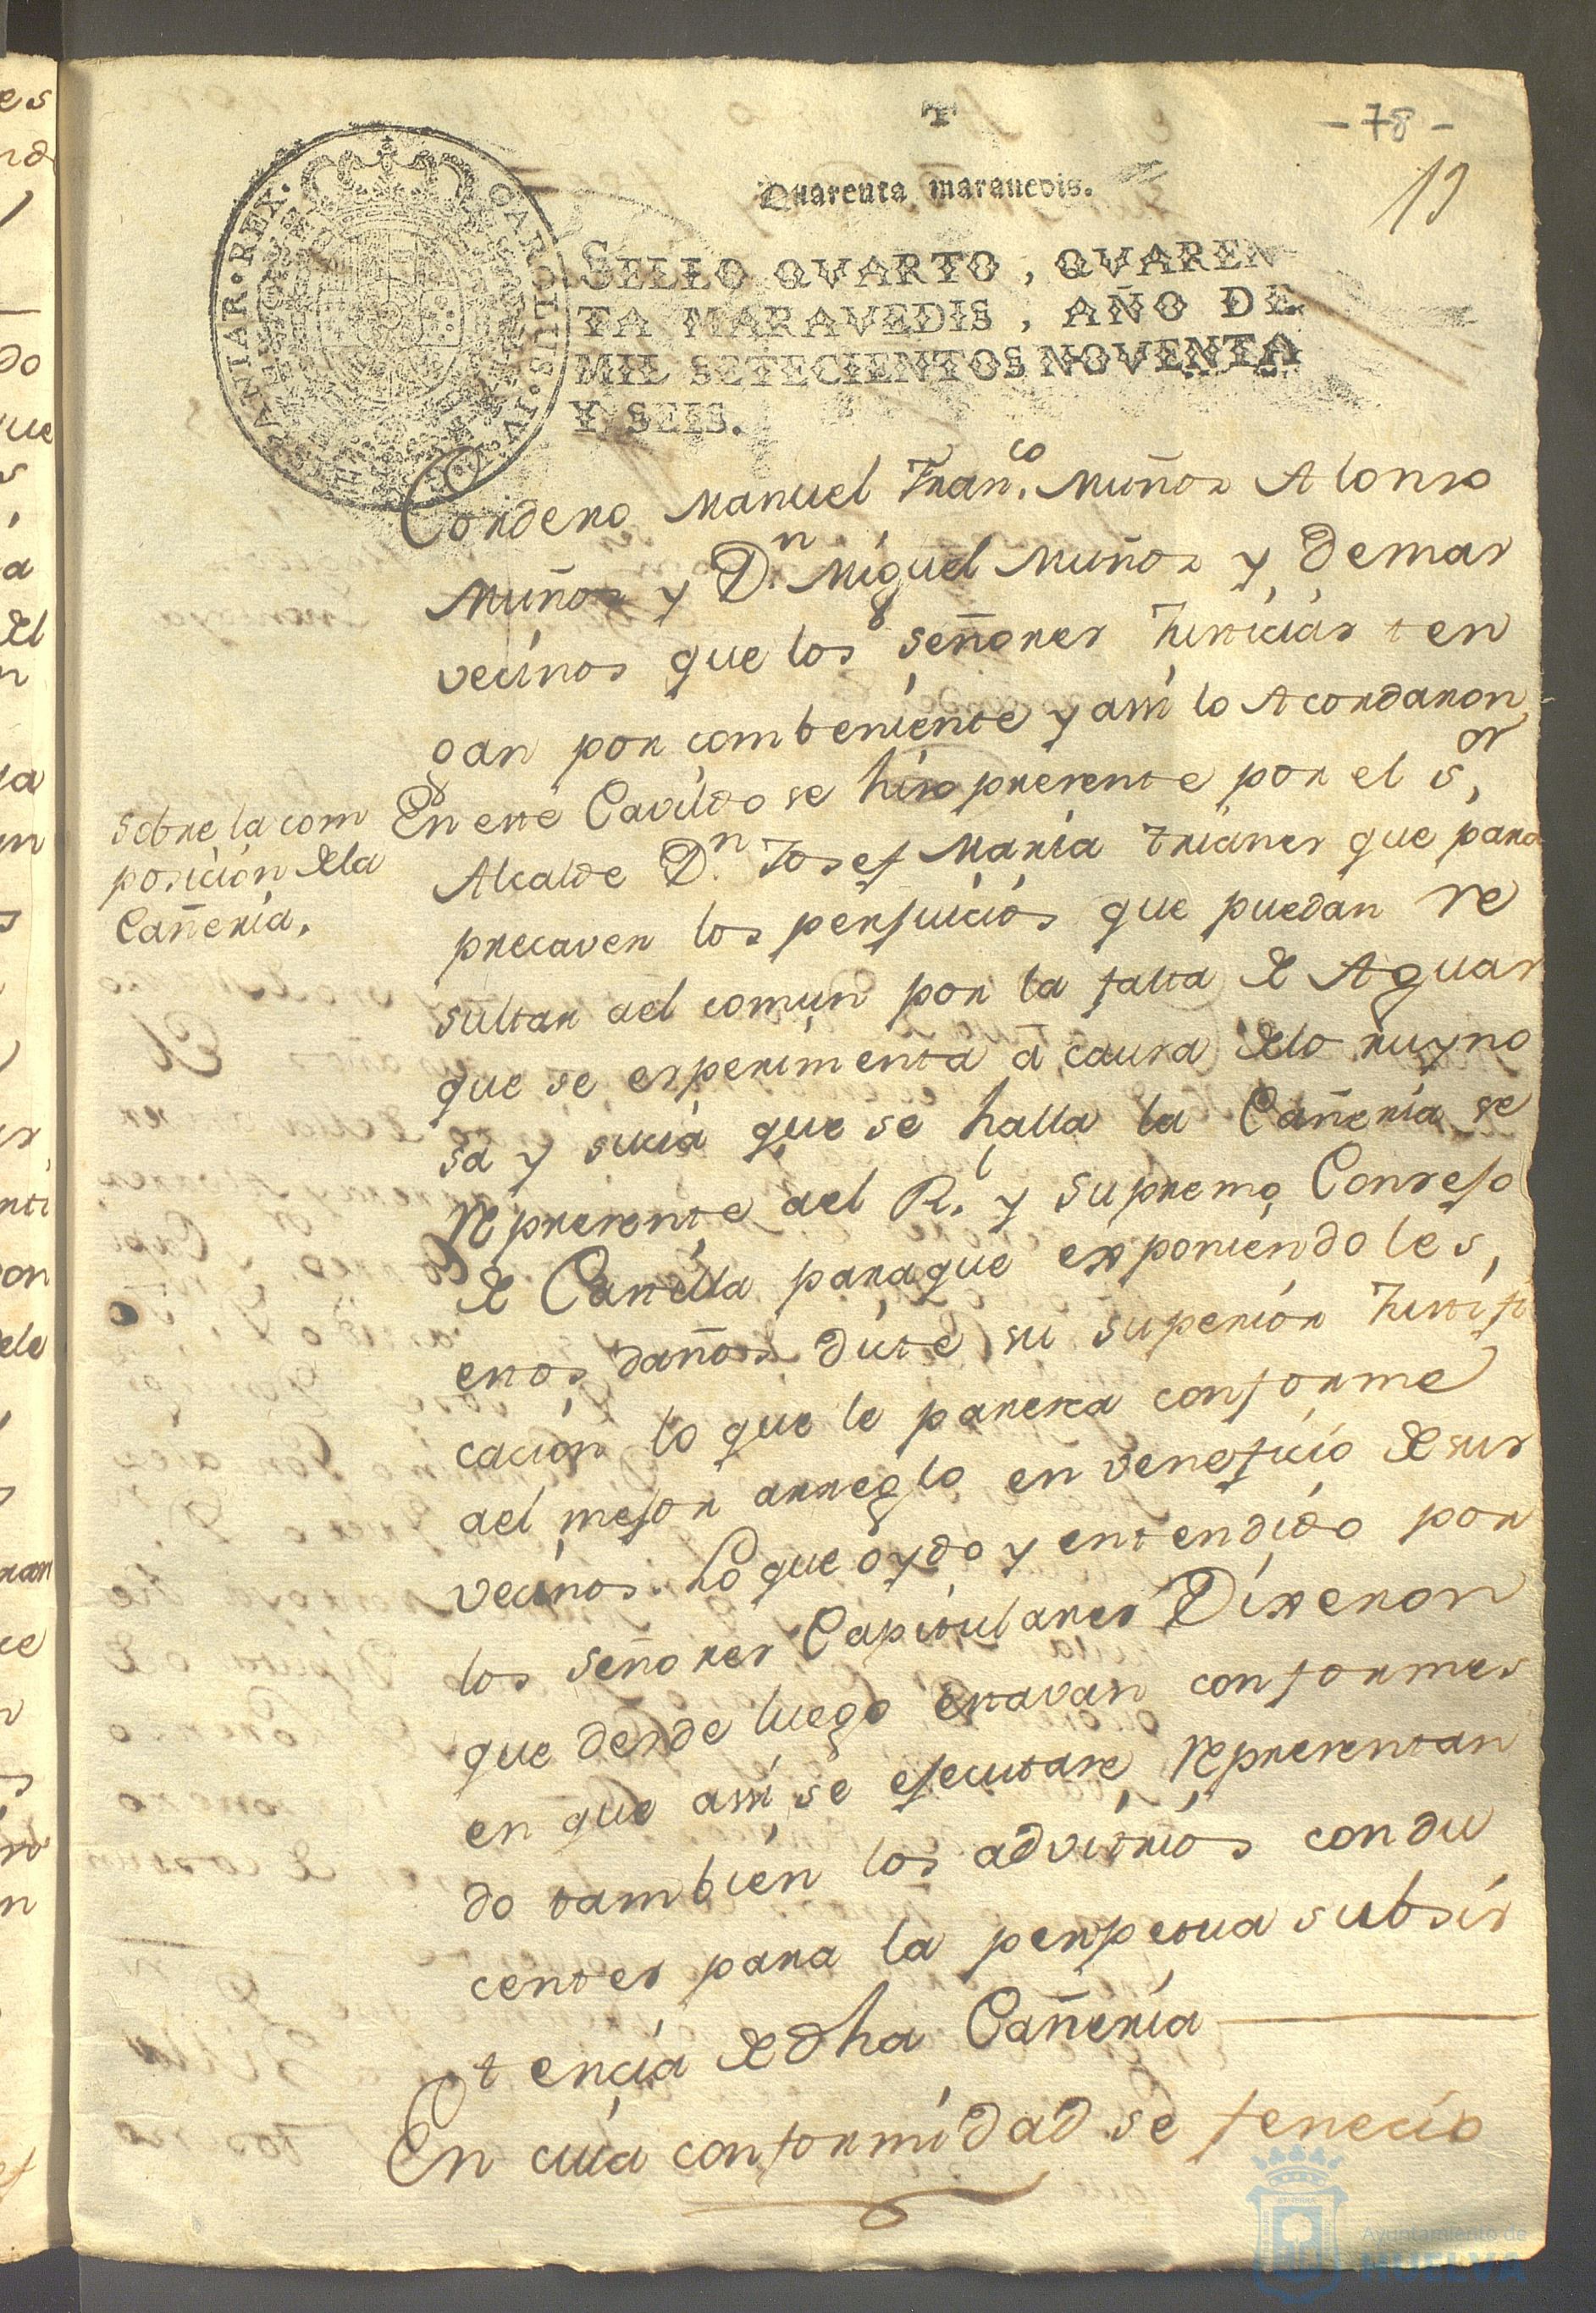 - 78 -
19
Quarenta maravedis.
SELLO QVARTO, QVAREN
TA MARAVEDIS, AÑO DE
MIL SETECIENTOS NOVENTA
Y SEIS.
Cordero Manuel Fran.co Muñoz Alonso
Muñoz y D.n Miguel Muñoz y demas
vecinos que los señores Justicias ten
gan por combeniente y assi lo Acordaron
Sobre la com
posicion dela
Cañeria.
En este Cavildo se hiso presente por el s.or
Alcalde D.n Josef Maria Trianes que para
precaver los perjuicios que puedan re
sultar ael comun por la falta de Aguas
que se esperimenta â causa delo ruyno
sa y sucia que se halla la Cañeria se
represente ael R.l y Supremo Consejo
de Castilla paraque exponiendoles,
estos daños dicte su superior Justifi
cacion lo que le paresca conforme
ael mejor arreglo en veneficio de sus
vecinos. Lo que oydo y entendido por
los señores Capitulares Dixeron
que desde luego estavan conformes
en que assi se ejecutase representan
do tambien los advitrios condu
centes para la perpetua subsis
tencia de dha Cañeria
En cuia conformidad se fenecio
Ayuntamiento de
HUELVA